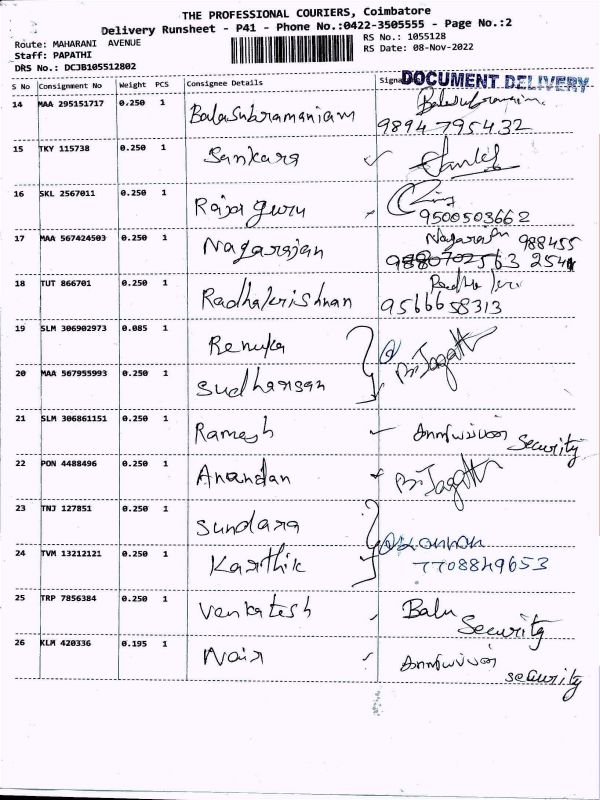 THE PROFESSIONAL COURIERS, Coimbatore
Delivery Runsheet - P41 - Phone No.:0422-3505555 - Page No.:2
Route: MAHARANI AVENUE
RS No.: 1055128
Staff: PAPATHI
RS Date: 08-Nov-2022
DRS No.: DCJB105512802
S No Consignment No Weight PCS Consignee Details
DOCUMENT DELIVERY
14 MAA 295151717 0.250 1 Balasubramaniam Balasubramaniam
9894795432
15 TKY 115738 0.250 1 Sankara
16 SKL 2567011 0.250 1 Raja guru
9500503662
17 MAA 567424503 0.250 1 Nagarajan Nagarajan 988455
2541
18 TUT 866701 0.250 1 Radhakrishnan
9566658313
19 SLM 306902973 0.085 1 Renuka
20 MAA 567955993 0.250 1 Sudharsan
21 SLM 306861151 0.250 1 Ramesh security
22 PON 4488496 0.250 1 Anandan
23 TNJ 127851 0.250 1 Sundara
24 TVM 13212121 0.250 1 Karthik Kannan
7708849653
25 TRP 7856384 0.250 1 Venkatesh Balu
Security
26 KLM 420336 0.195 1 Nair
security